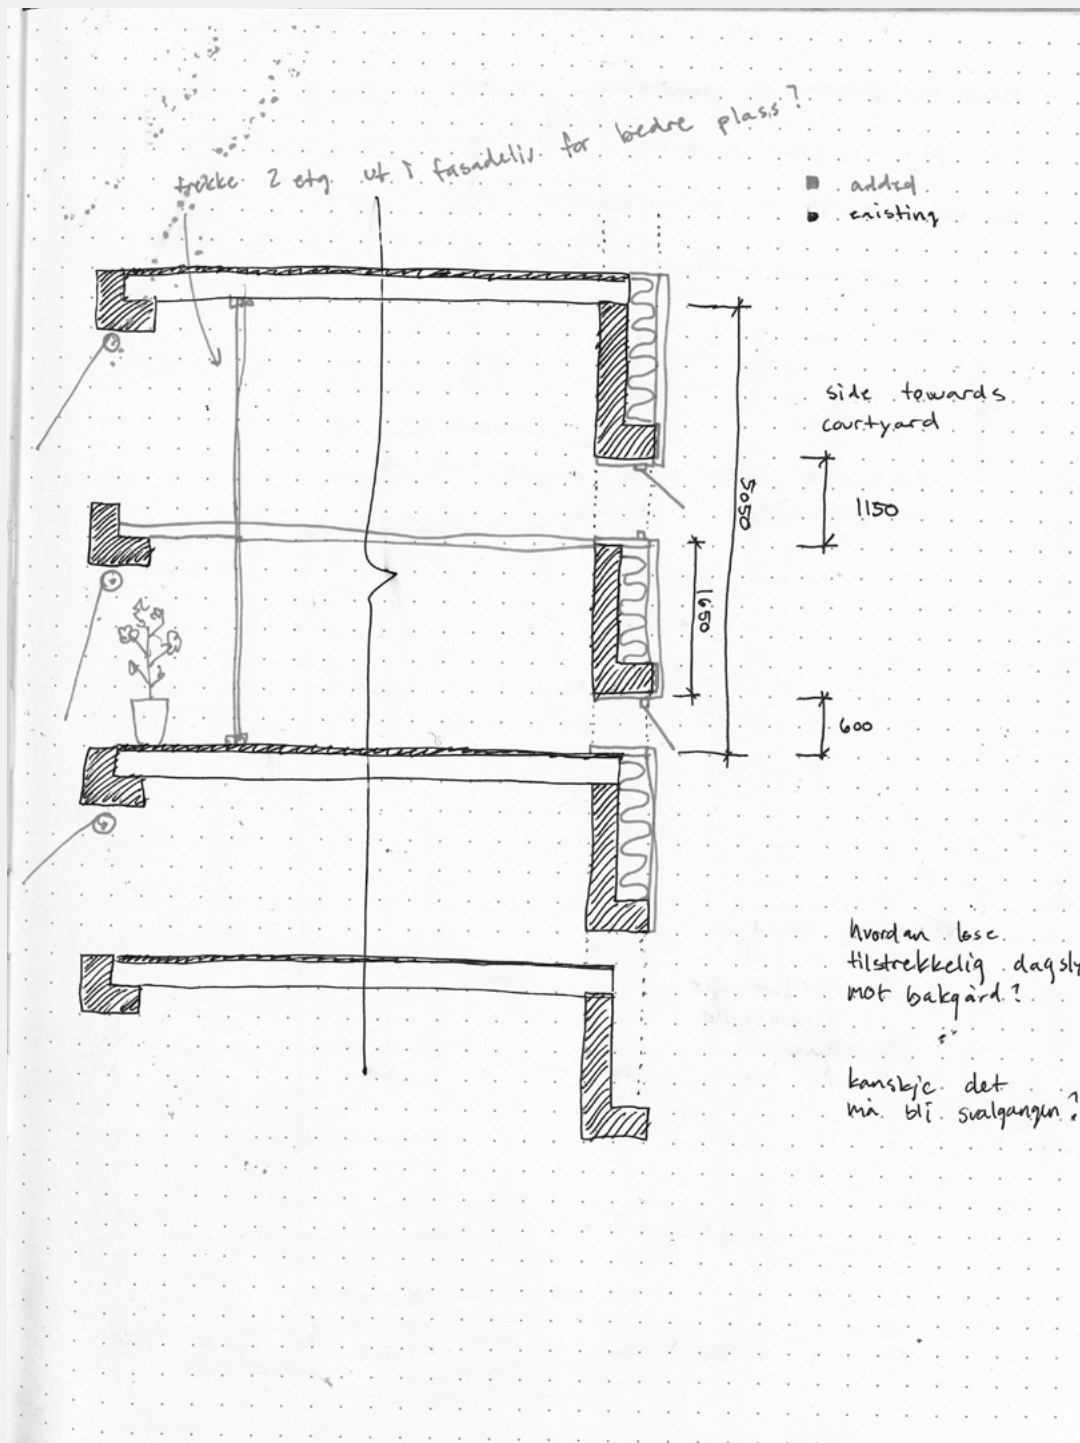 trekke 2 etg. ut i fasadeliv for bedre plass?
added
existing
side towards
courtyard
1150
5050
1650
600
hvordan løse
tilstrekkelig dagsly
mot bakgård?
kanskje det
må bli svalgangen?